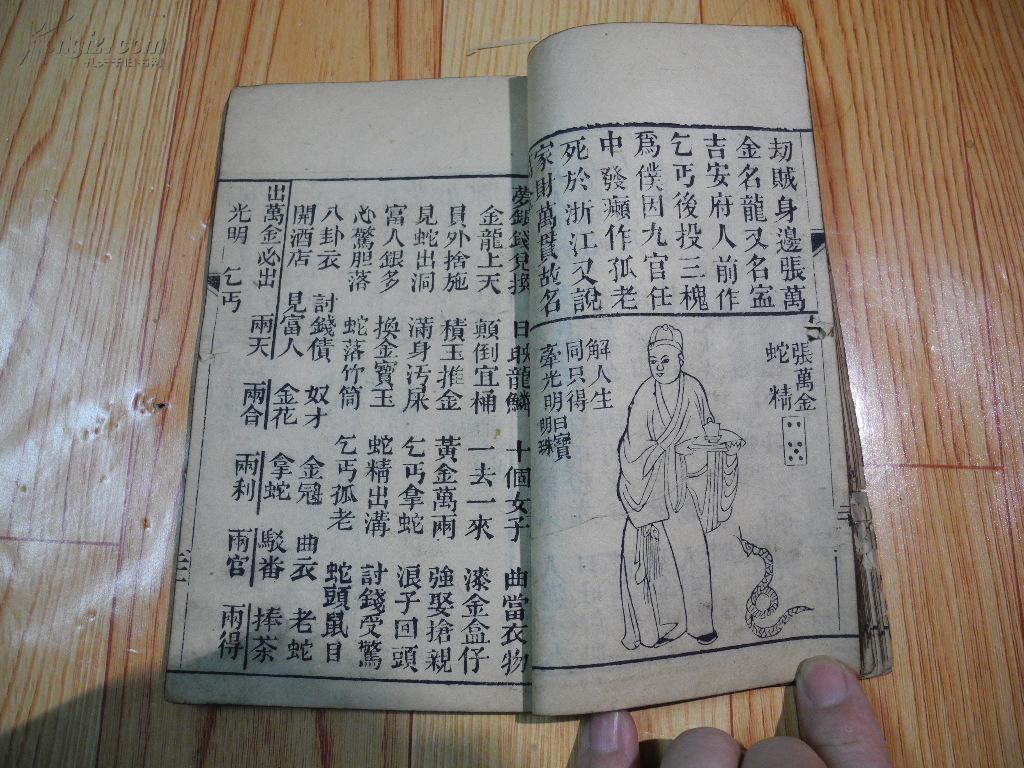 刧賊身邊張萬
金名龍又名寍
吉安府人前作
乞丐後投三槐
爲僕因九官任
中發癲作孤老
死於浙江又說
家財萬貫故名
張萬金
蛇精
解人生
同只得
牽光明日寶
明珠
日映龍鱗 十個女子 曲當衣物
金龍上天 顛倒宜桶 一去一來 漆金盒仔
貝外捨施 積玉推金 黃金萬兩 強娶搶親
見蛇出洞 滿身汚屎 乞丐拿蛇 浪子回頭
富人銀多 換金寶玉 蛇精出溝 討錢受驚
必驚胆落 蛇落竹筒 乞丐孤老 蛇頭鼠目
八卦衣 討錢債 奴才 金冠 曲衣 老蛇
開酒店 見富人 金花 拿蛇 駁番 捧茶
出萬金必出 兩天 兩合 兩利 兩官 兩得
光明 乞丐
kongfz.com
孔夫子旧书网